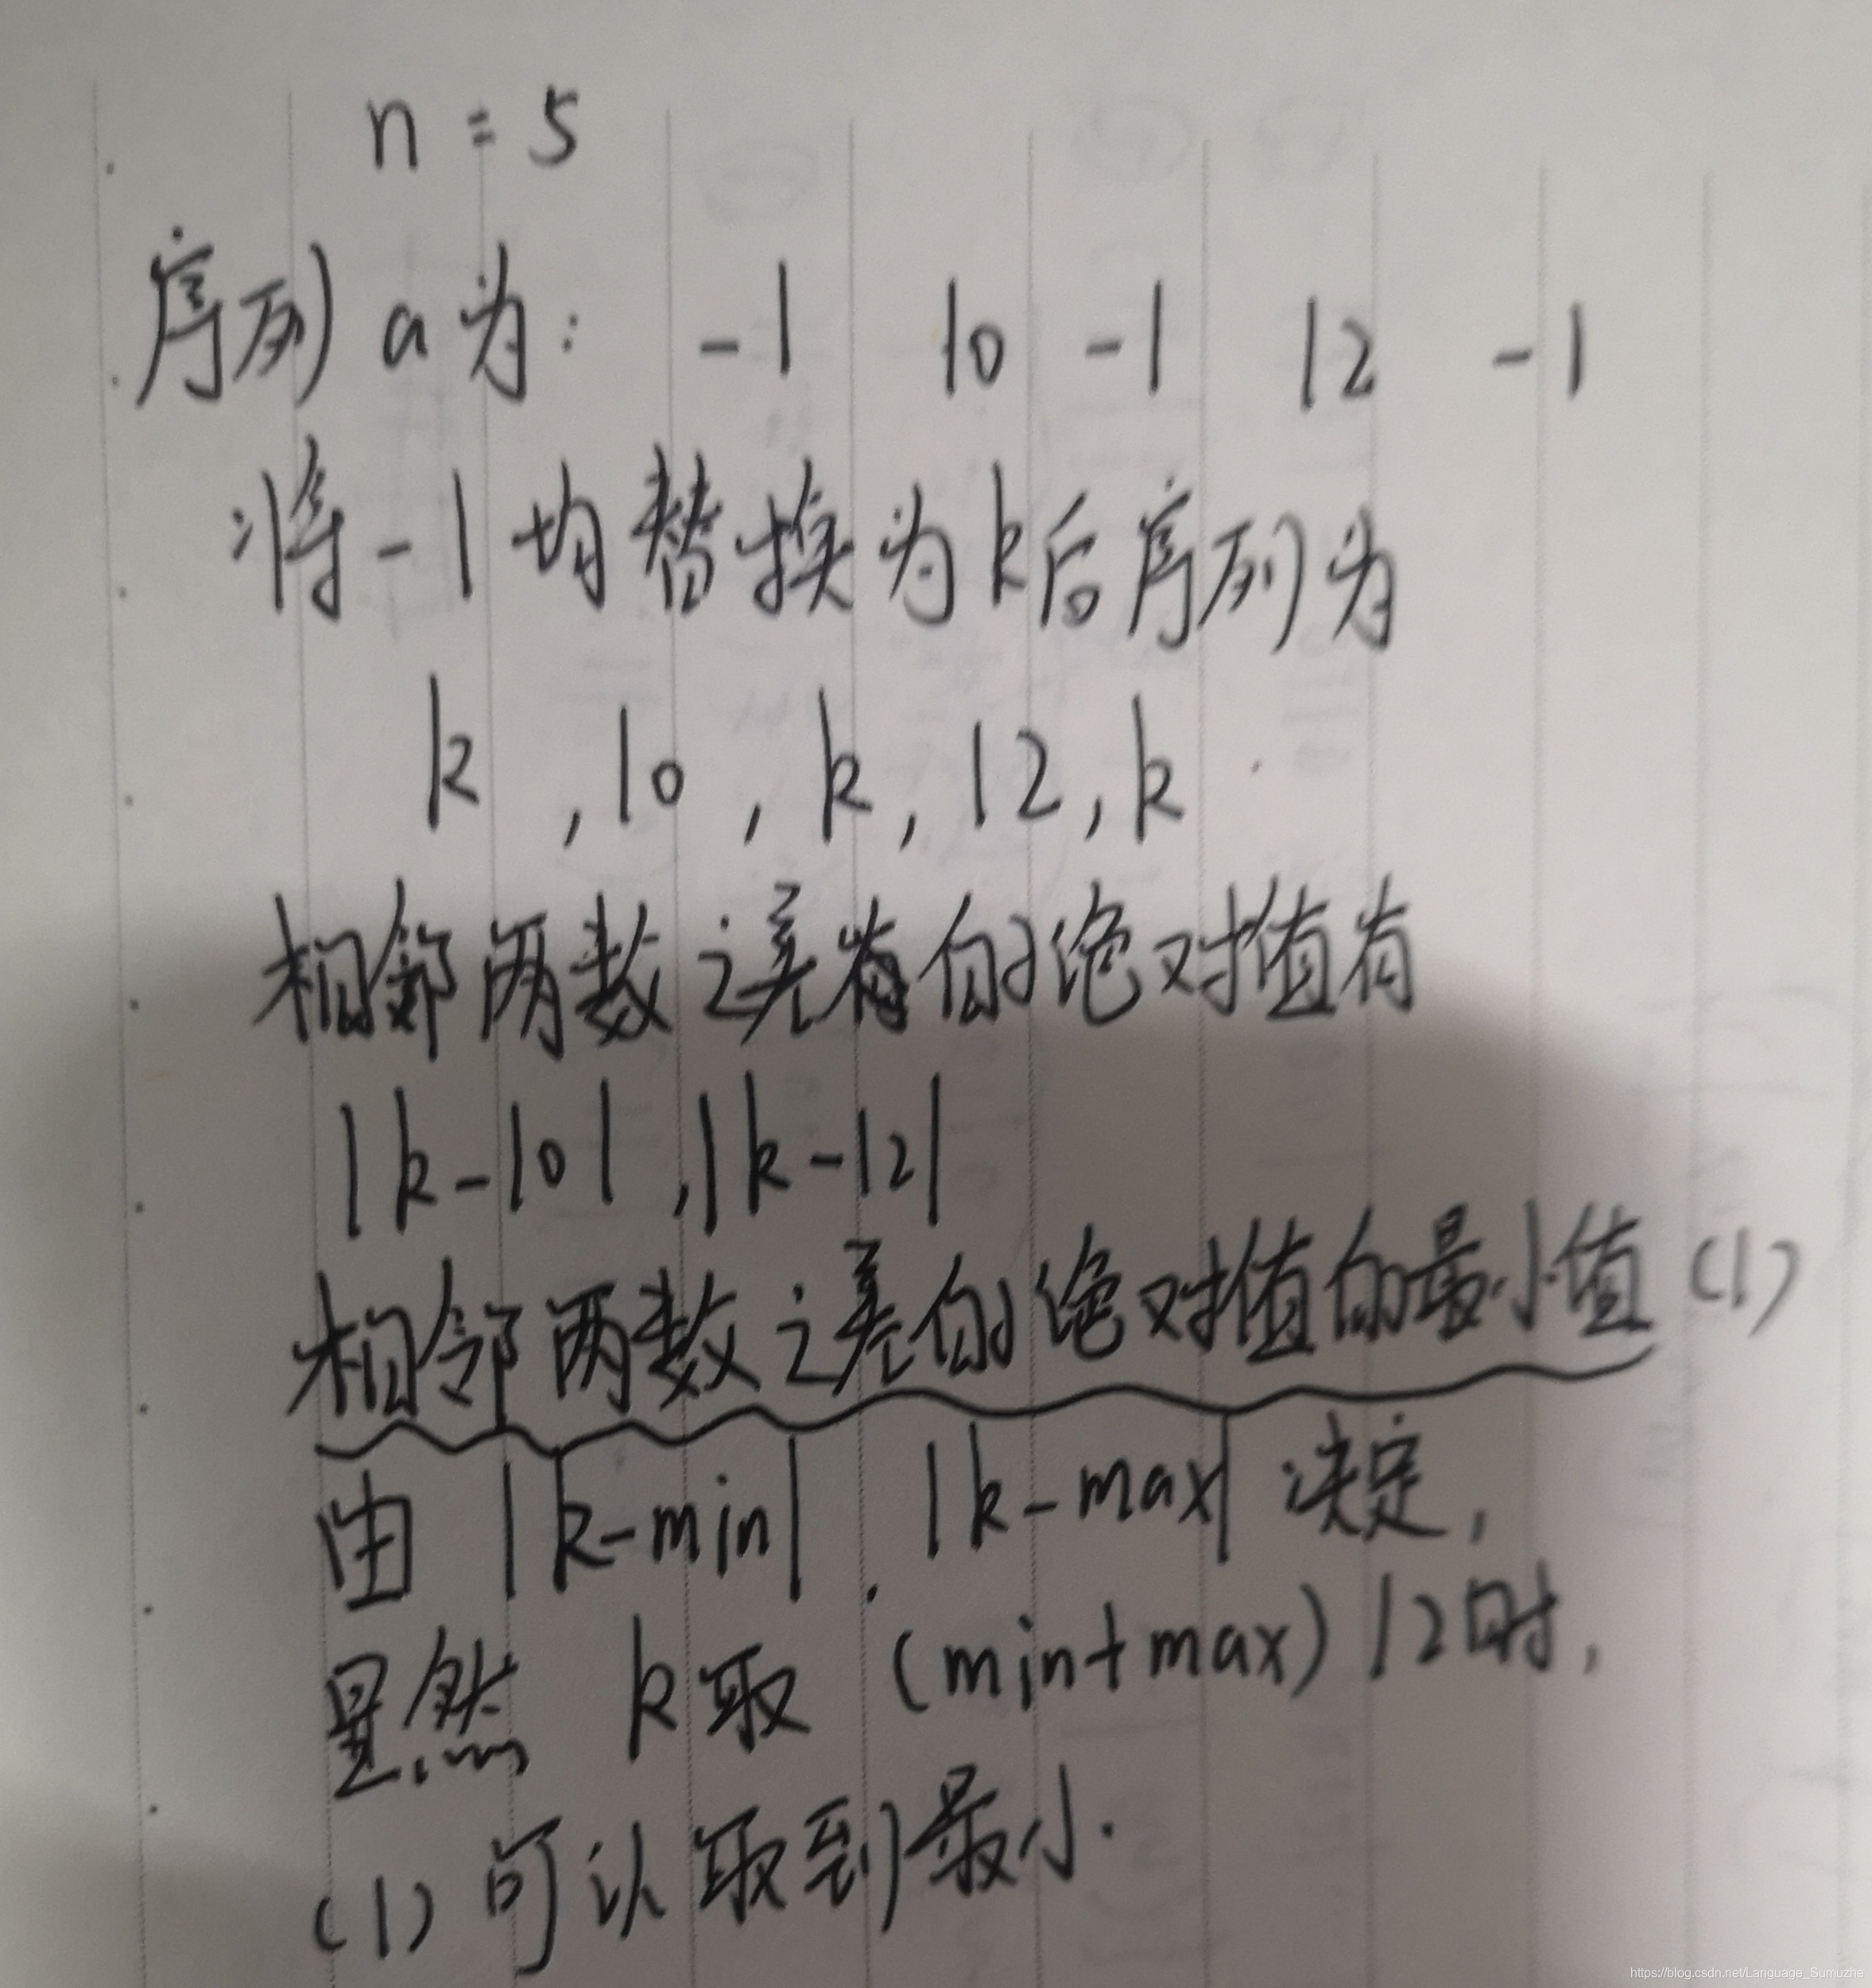 n = 5
序列 a 为: -1 10 -1 12 -1
将 -1 均替换为k后序列为
k , 10 , k , 12 , k
相邻两数之差的绝对值有
|k-10| , |k-12|
相邻两数之差的绝对值的最小值 (1)
由 |k-min| , |k-max| 决定,
显然 k取 (min+max)/2时,
(1) 可以取到最小.
https://blog.csdn.net/Language_Sumuzhe